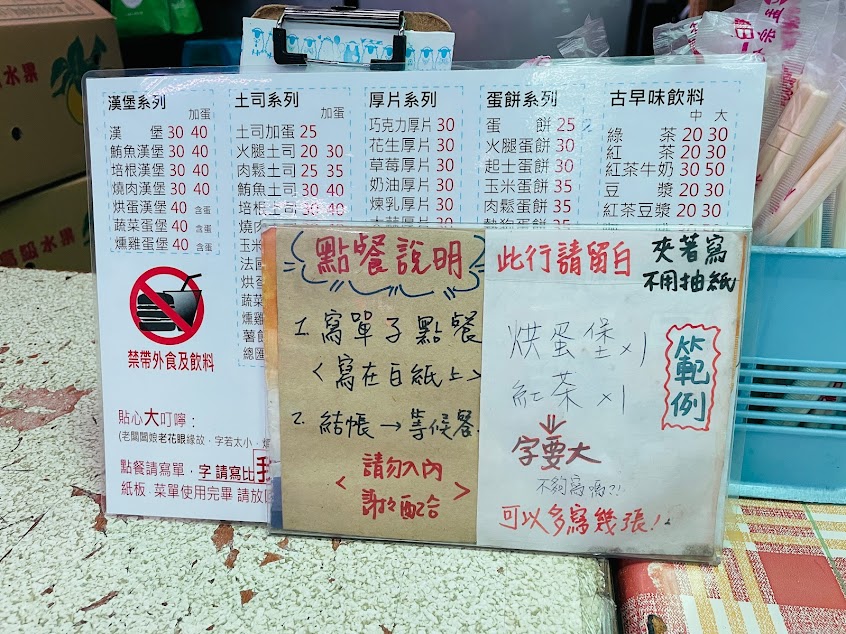 漢堡系列
加蛋
漢　　堡 30 40
鮪魚漢堡 30 40
培根漢堡 30 40
燒肉漢堡 30 40
烘蛋漢堡 40 含蛋
蔬菜蛋堡 40 含蛋
燻雞蛋堡 40 含蛋
禁帶外食及飲料
貼心大叮嚀：
(老闆娘老花眼緣故，字若太小，
點餐請寫單，字 請寫比
紙板，菜單使用完畢 請放
土司系列
加蛋
土司加蛋 25
火腿土司 20 30
肉鬆土司 25 35
鮪魚土司 30 40
培根土司 30 40
燒肉
玉米
法國
烘蛋
蔬菜
燻雞
薯餅
總匯
厚片系列
巧克力厚片 30
花生厚片 30
草莓厚片 30
奶油厚片 30
煉乳厚片 30
蛋餅系列
蛋　　餅 25
火腿蛋餅 30
起士蛋餅 30
玉米蛋餅 35
肉鬆蛋餅 35
古早味飲料
中 大
綠　　茶 20 30
紅　　茶 20 30
紅茶牛奶 30 50
豆　　漿 20 30
紅茶豆漿 20 30
點餐說明
1. 寫單子點餐
<寫在白紙上>
2. 結帳→等候餐.
<請勿入內
謝謝配合>
此行請留白
夾著寫
不用抽紙
烘蛋堡×1
紅茶×1
範例
⇓
字要大
不夠寫嗎?!
可以多寫幾張!
水果
高級水果